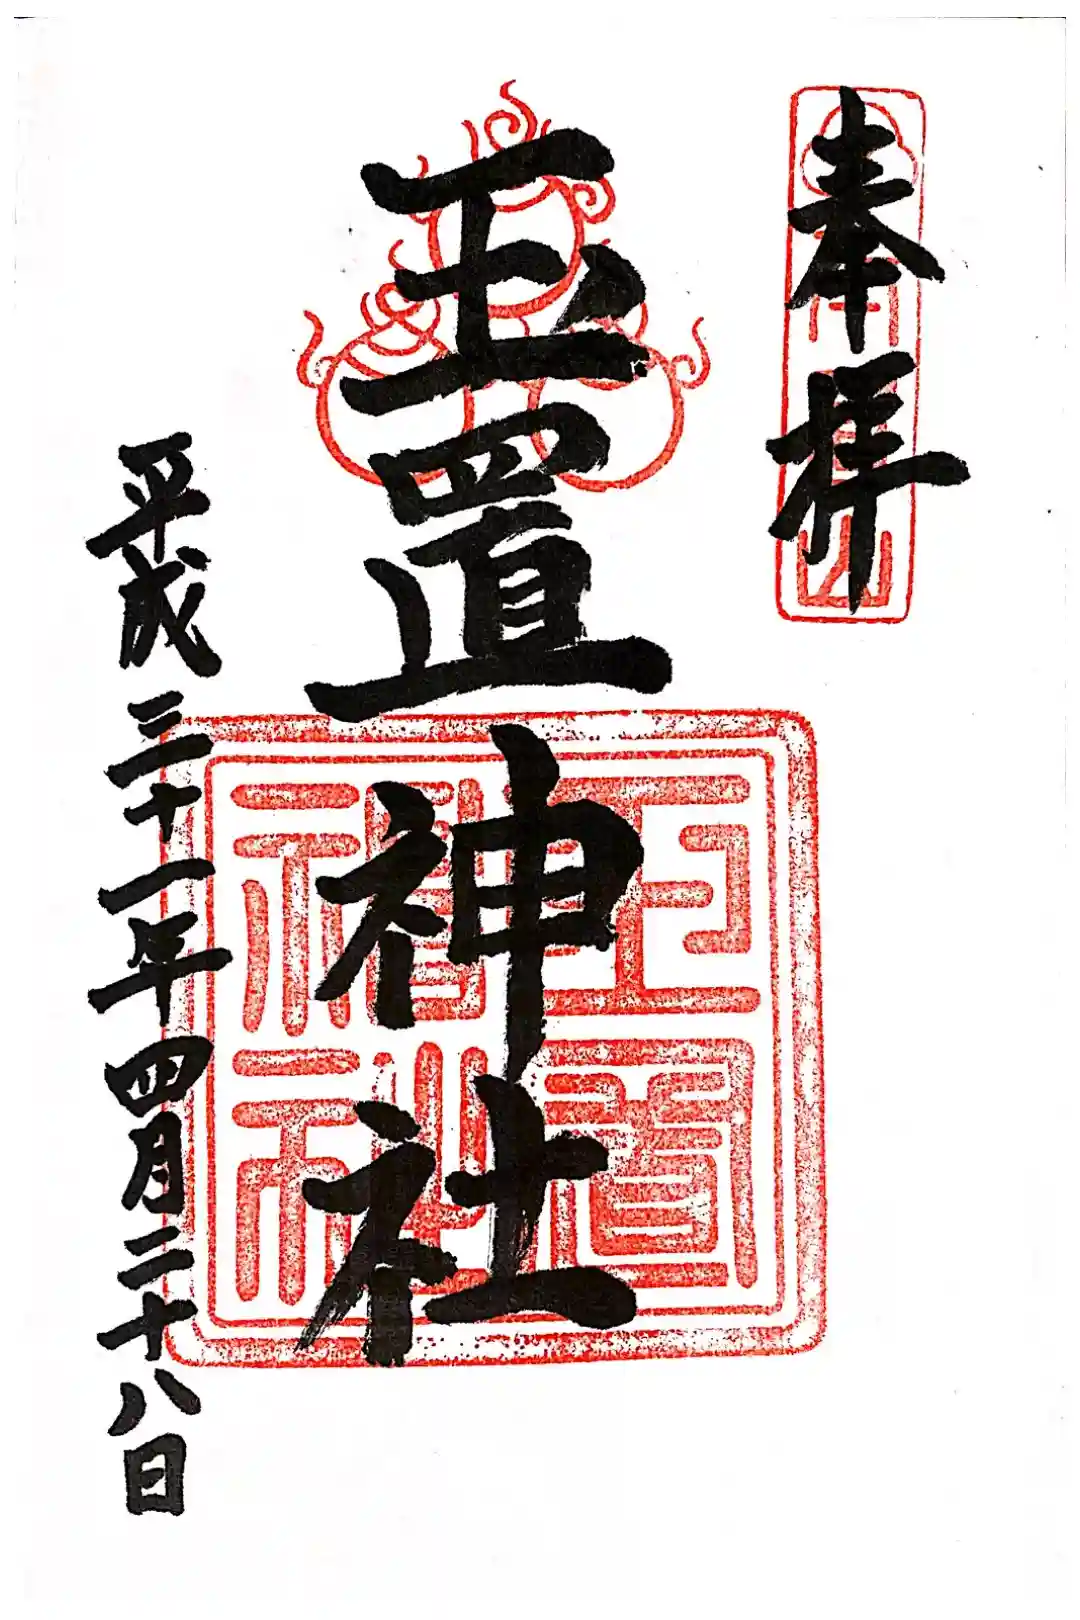 奉拝
玉置神社
平成三十一年四月二十八日
玉置神社